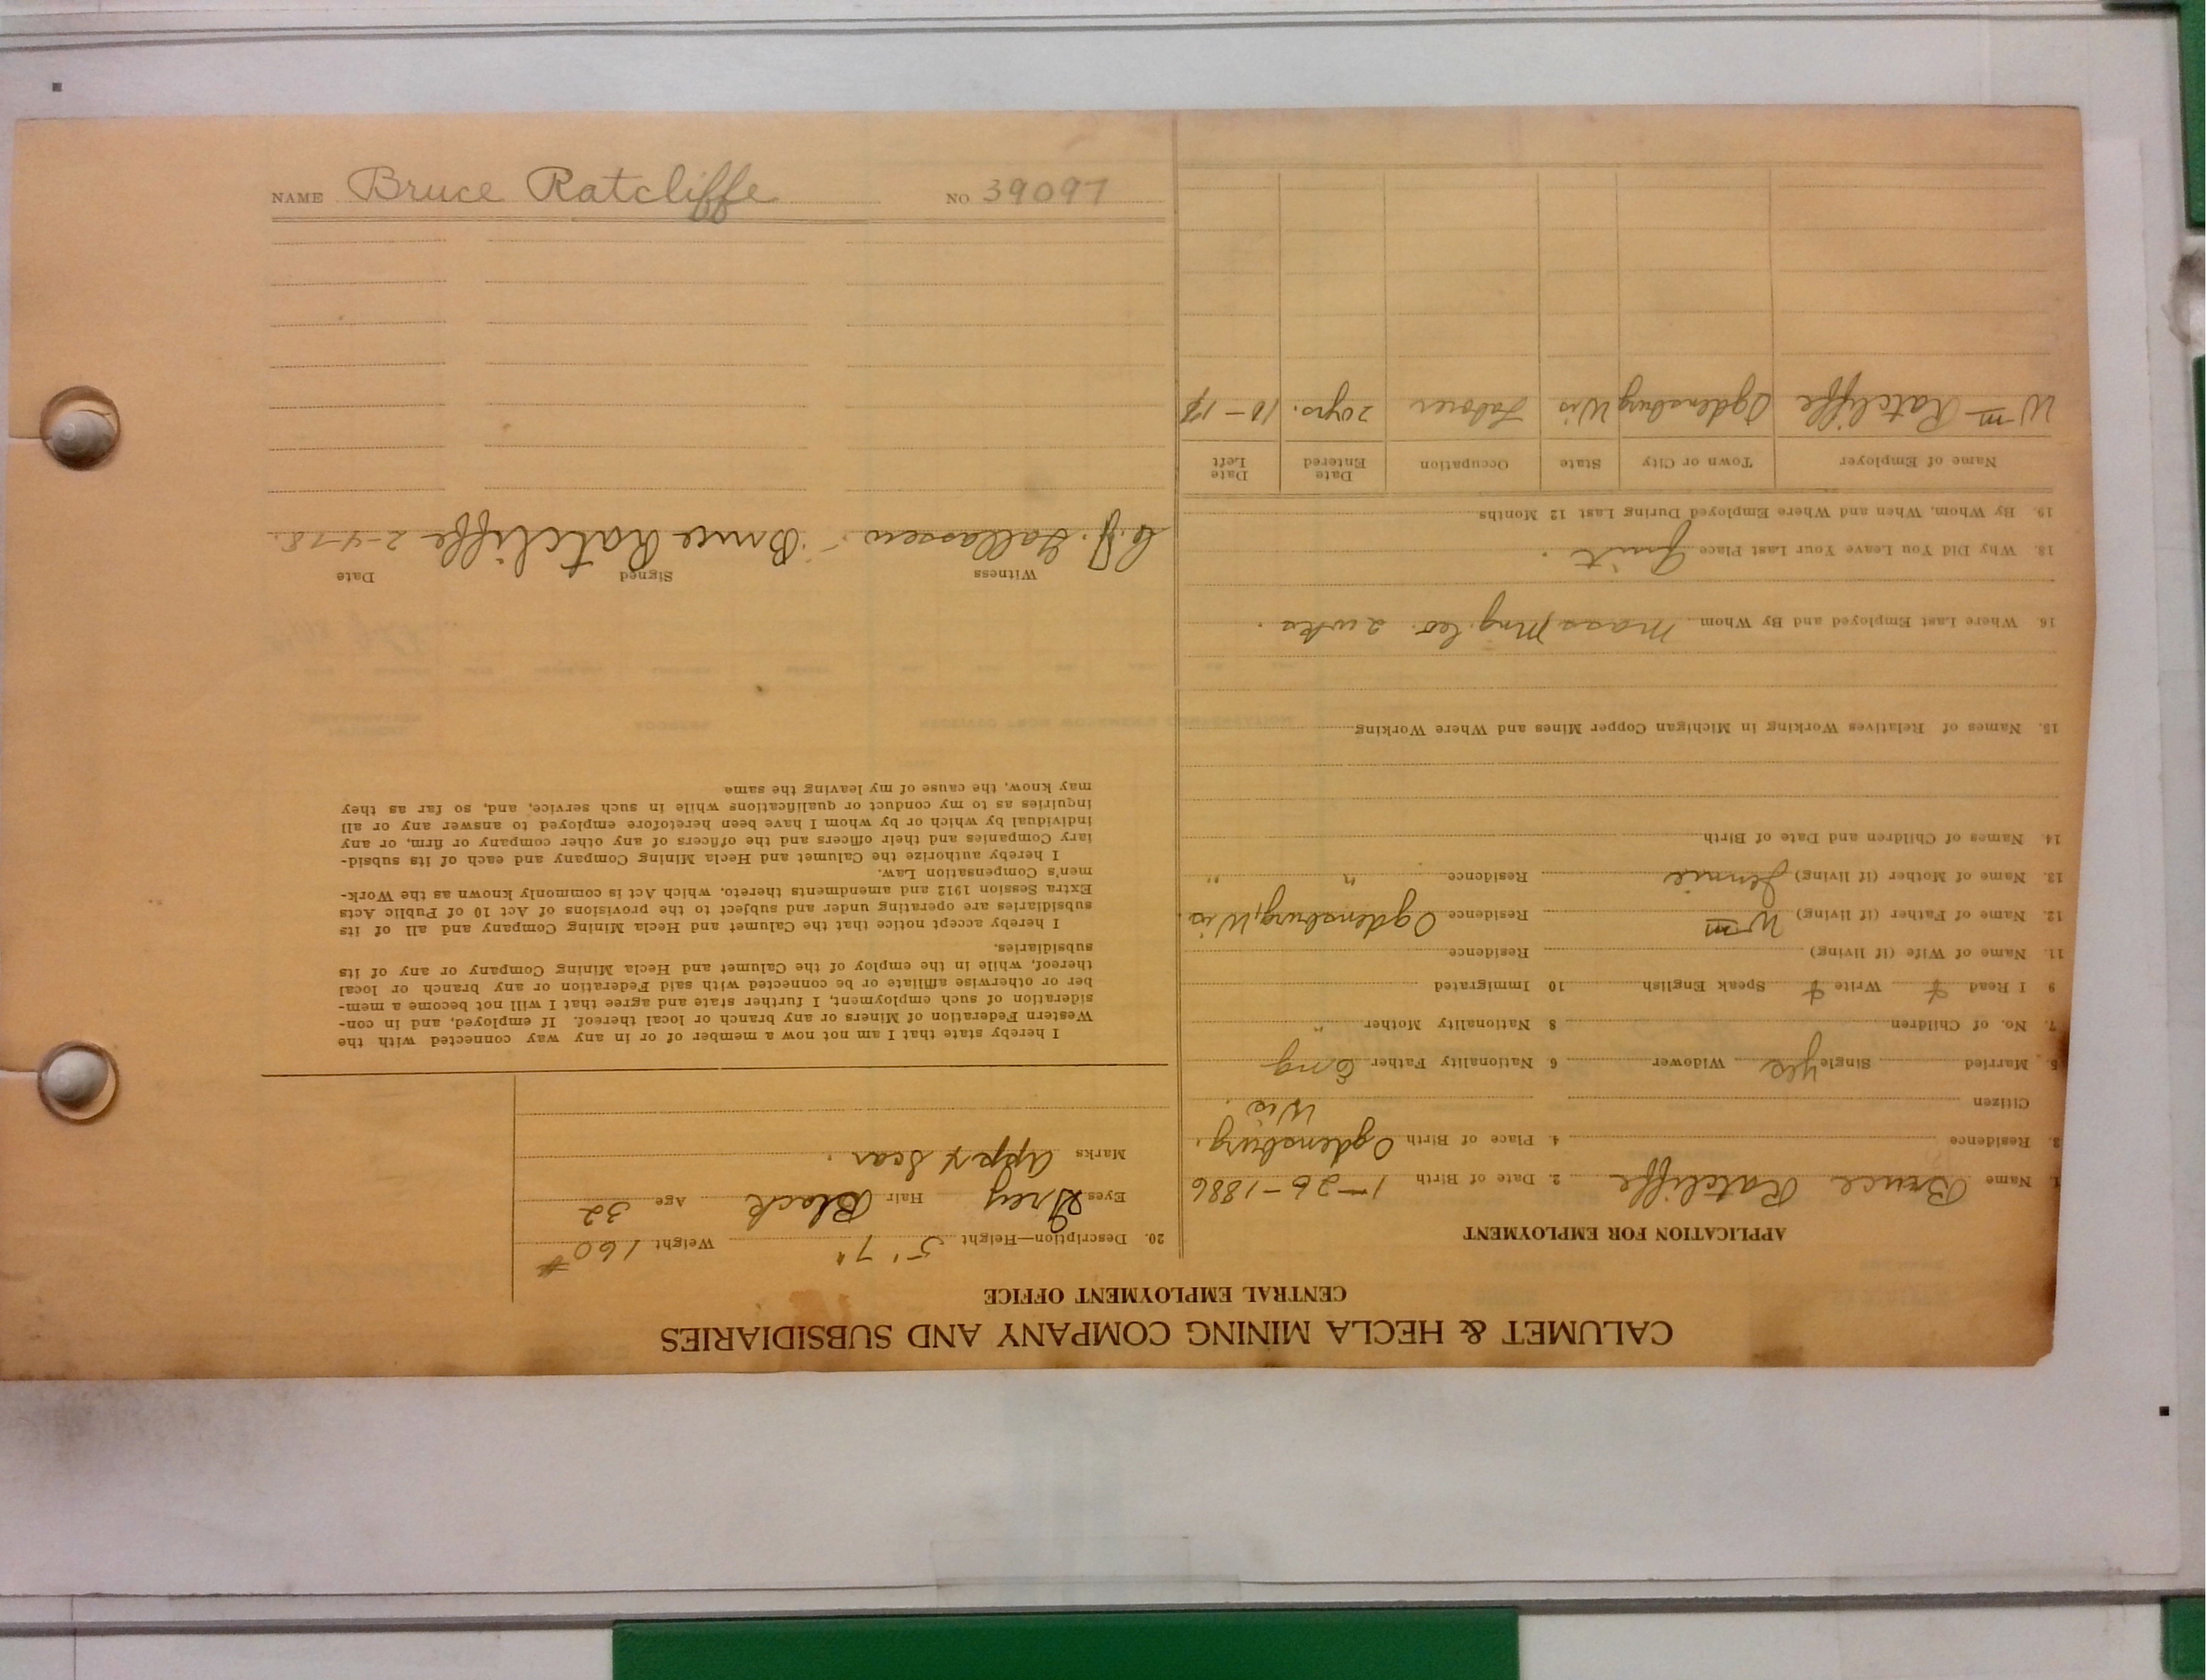 CALUMET & HECLA MINING COMPANY AND SUBSIDIARIES
CENTRAL EMPLOYMENT OFFICE
APPLICATION FOR EMPLOYMENT
1. Name Bruce Ratcliffe 2. Date of Birth 1-26-1886
3. Residence 4. Place of Birth Ogdensburg,
Citizen Wis.
5. Married Single yes Widower 6 Nationality Father Eng
7. No. of Children 8 Nationality Mother "
9 I Read Write Speak English 10 Immigrated
11. Name of Wife (if living) Residence
12. Name of Father (if living) Wm Residence Ogdensburg, Wis.
13. Name of Mother (if living) Jennie Residence " "
14. Names of Children and Date of Birth
15. Names of Relatives Working in Michigan Copper Mines and Where Working
16. Where Last Employed and By Whom Mass Mng. Co. 2 wks.
18. Why Did You Leave Your Last Place Quit.
19. By Whom, When and Where Employed During Last 12 Months
Name of Employer Town or City State Occupation Date Entered Date Left
Wm Ratcliffe Ogdensburg Wis Laborer 20 yrs. 10-17
20. Description—Height 5' 7" Weight 160 #
Eyes Grey Hair Black Age 32
Marks Appx Scar.
I hereby state that I am not now a member of or in any way connected with the
Western Federation of Miners or any branch or local thereof. If employed, and in con-
sideration of such employment, I further state and agree that I will not become a mem-
ber or otherwise affiliate or be connected with said Federation or any branch or local
thereof, while in the employ of the Calumet and Hecla Mining Company or any of its
subsidiaries.
I hereby accept notice that the Calumet and Hecla Mining Company and all of its
subsidiaries are operating under and subject to the provisions of Act 10 of Public Acts
Extra Session 1912 and amendments thereto, which Act is commonly known as the Work-
men's Compensation Law.
I hereby authorize the Calumet and Hecla Mining Company and each of its subsid-
iary Companies and their officers and the officers of any other company or firm, or any
individual by which or by whom I have been heretofore employed to answer any or all
inquiries as to my conduct or qualifications while in such service, and, so far as they
may know, the cause of my leaving the same
Witness Signed Date
Bruce Ratcliffe 2-4-18.
NAME Bruce Ratcliffe NO 39097